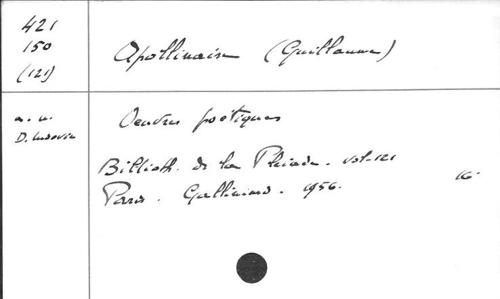 421
150
(121)
Apollinaire (Guillaume)
Oeuvres poétiques
Biblioth. de la Pléiade. vol. 121
Paris. Gallimard. 1956.
16°